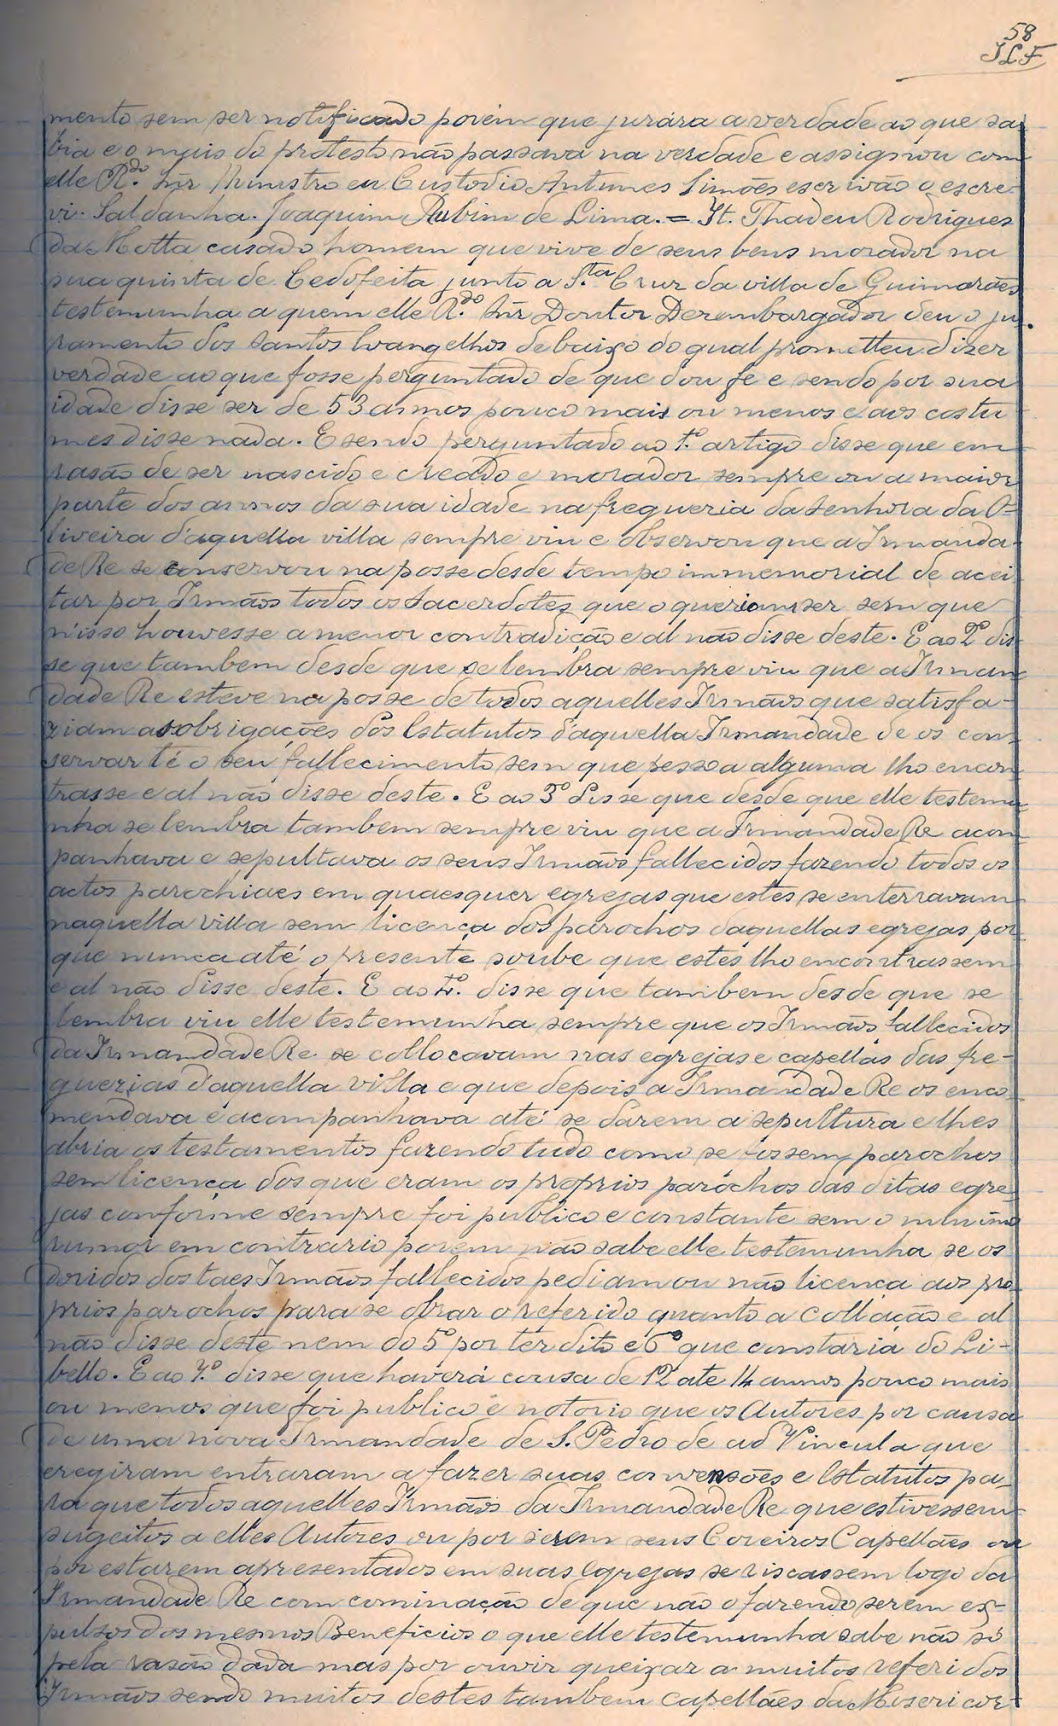 58
JLF
mento sem ser notificado porém que jurára a verdade ao que sa-
bia e o mais do protesto não passava na verdade e assignou com
elle R.do Snr Ministro eu Custodio Antunes Simões escrivão o escre-
vi. Saldanha. Joaquim Rubim de Lima. = It. Thadeu Rodrigues
da Motta casado homem que vive de seus bens morador na
sua quinta de Cedofeita junto a S.ta Cruz da villa de Guimarães
testemunha a quem elle R.do Snr Doutor Desembargador deu o ju-
ramento dos Santos Evangelhos debaixo do qual prometteu dizer
verdade ao que fosse perguntado de que dou fé e sendo por sua
idade disse ser de 53 annos pouco mais ou menos e aos costu
mes disse nada. E sendo perguntado ao 1.º artigo disse que em
rasão de ser nascido e creado e morador sempre ou a maior
parte dos annos da sua idade na fregueria da Senhora da O-
liveira d'aquella villa sempre viu e observou que a Irmanda-
de Re se conservou na posse desde tempo immemorial de acei
tar por Irmãos todos os Sacerdotes que o queriam ser sem que
n'isso houvesse a menor contradição e al não disse deste. E ao 2º dis-
se que tambem desde que se lembra sempre viu que a Irman-
dade Re esteve na posse de todos aquelles Irmãos que satisfa-
ziam as obrigações dos Estatutos d'aquella Irmandade de os con-
servar té o seu fallecimento sem que pessoa alguma lho encon
trasse e al não disse deste. E ao 3º disse que desde que elle testemu-
nha se lembra tambem sempre viu que a Irmandade Re acom-
panhava e sepultava os seus Irmãos fallecidos fazendo todos os
actos parochiaes em quaesquer egrejas que estes se enterravam
naquella villa sem licença dos parochos daquellas egrejas por
que nunca até o presente soube que estes lho encontrassem
e al não disse deste. E ao 4.º disse que tambem desde que se
lembra viu elle testemunha sempre que os Irmãos fallecidos
da Irmandade Re se collocavam nas egrejas e capellas das fre-
guezias d'aquella villa e que depois a Irmandade Re os enco
mendava e acompanhava até se darem a sepultura e lhes
abria os testamentos fazendo tudo como se fossem parochos
sem licença dos que eram os proprios paróchos das ditas egre-
jas conforme sempre foi publico e constante sem o minimo
rumor em contrario porem não sabe elle testemunha se os
doridos dos taes Irmãos fallecidos pediam ou não licença aos pro-
prios parochos para se obrar o referido quanto a collação e al
não disse deste nem do 5º por ter dito e 6º que constaria do Li-
bello. E ao 7.º disse que haverá cousa de 12 até 14 annos pouco mais
ou menos que foi publico e notorio que os Autores por causa
de uma nova Irmandade de S. Pedro de ad Vincula que
eregiram entraram a fazer suas convensões e Estatutos pa-
ra que todos aquelles Irmãos da Irmandade Re que estivessem
sugeitos a elles Autores ou por serem seus Coreiros Capellães ou
por estarem apresentados em suas egrejas se riscassem logo da
Irmandade Re com cominação de que não o fazendo serem ex-
pulsos dos mesmos Beneficios o que elle testemunha sabe não só
pela rasão dada mas por ouvir queixar a muitos referidos
Irmãos sendo muitos destes tambem capellães da Misericor-